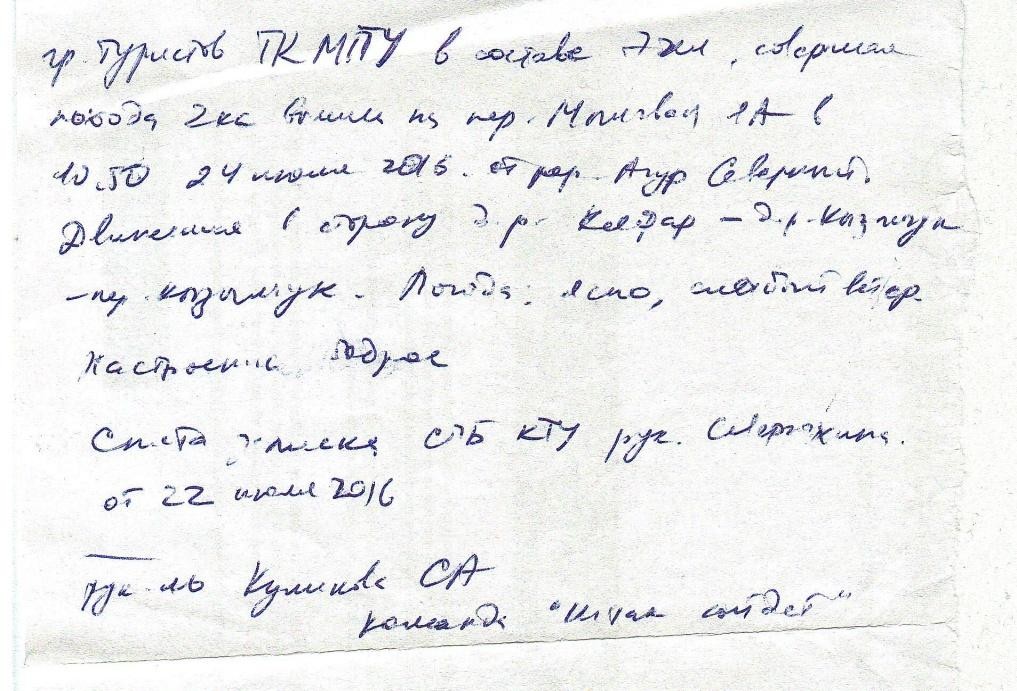 гр. туристов ТК МПУ в составе 7 чел, совершая
похода 2кс вышли на пер. 1А в
10.50 24 июля 2016. от пер. Агур Северный.
Движение в сторону д.р. – д.р. Кызылчук
– пер. Кызылчук. Погода: ясно, слабый ветер.
Настроение бодрое
Снята записка СПб КТУ рук.
от 22 июля 2016
рук-ль Куликова СА
команда "и так сойдет"